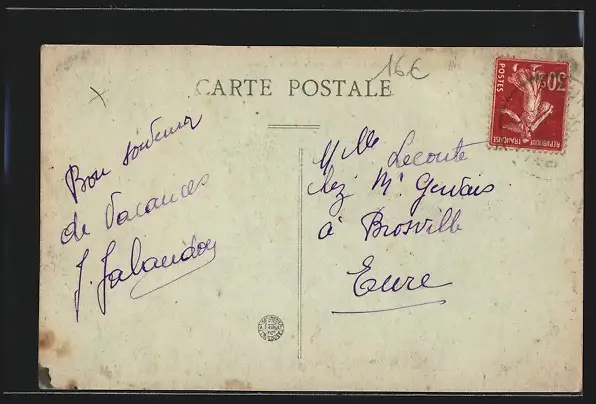 CARTE POSTALE
16€
Bon souvenir
de Vacances
J. Jalaudon
Mlle Lecoute
chez Mr Gervais
à Brosville
Eure
POSTES
30c
REPUBLIQUE FRANÇAISE